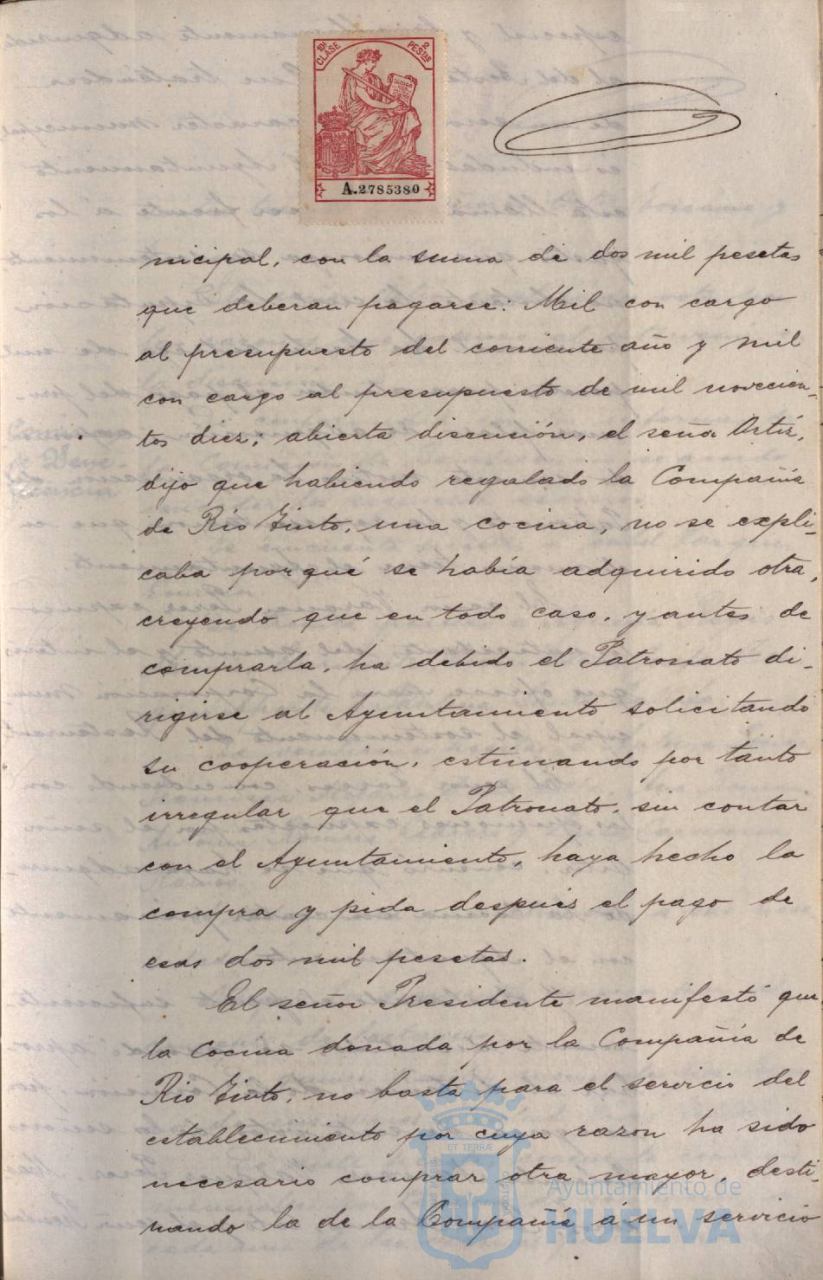 10ª CLASE
2 PESETAS
A.2785380
nicipal, con la suma de dos mil pesetas
que deberan pagarse: Mil con cargo
al presupuesto del corriente año y mil
con cargo al presupuesto de mil novecien-
tos diez; abierta discusión, el señor Ortiz,
dijo que habiendo regalado la Compañía
de Rio Tinto, una cocina, no se expli-
caba porqué se había adquirido otra,
creyendo que en todo caso, y antes de
comprarla, ha debido el Patronato di-
rigirse al Ayuntamiento solicitando
su cooperación, estimando por tanto
irregular que el Patronato, sin contar
con el Ayuntamiento, haya hecho la
compra y pida después el pago de
esas dos mil pesetas.
El señor Presidente manifestó que
la Cocina donada por la Compañía de
Rio Tinto, no basta para el servicio del
establecimiento por cuya razon ha sido
necesario comprar otra mayor, desti-
nando la de la Compañía á un servicio
Ayuntamiento de
HUELVA